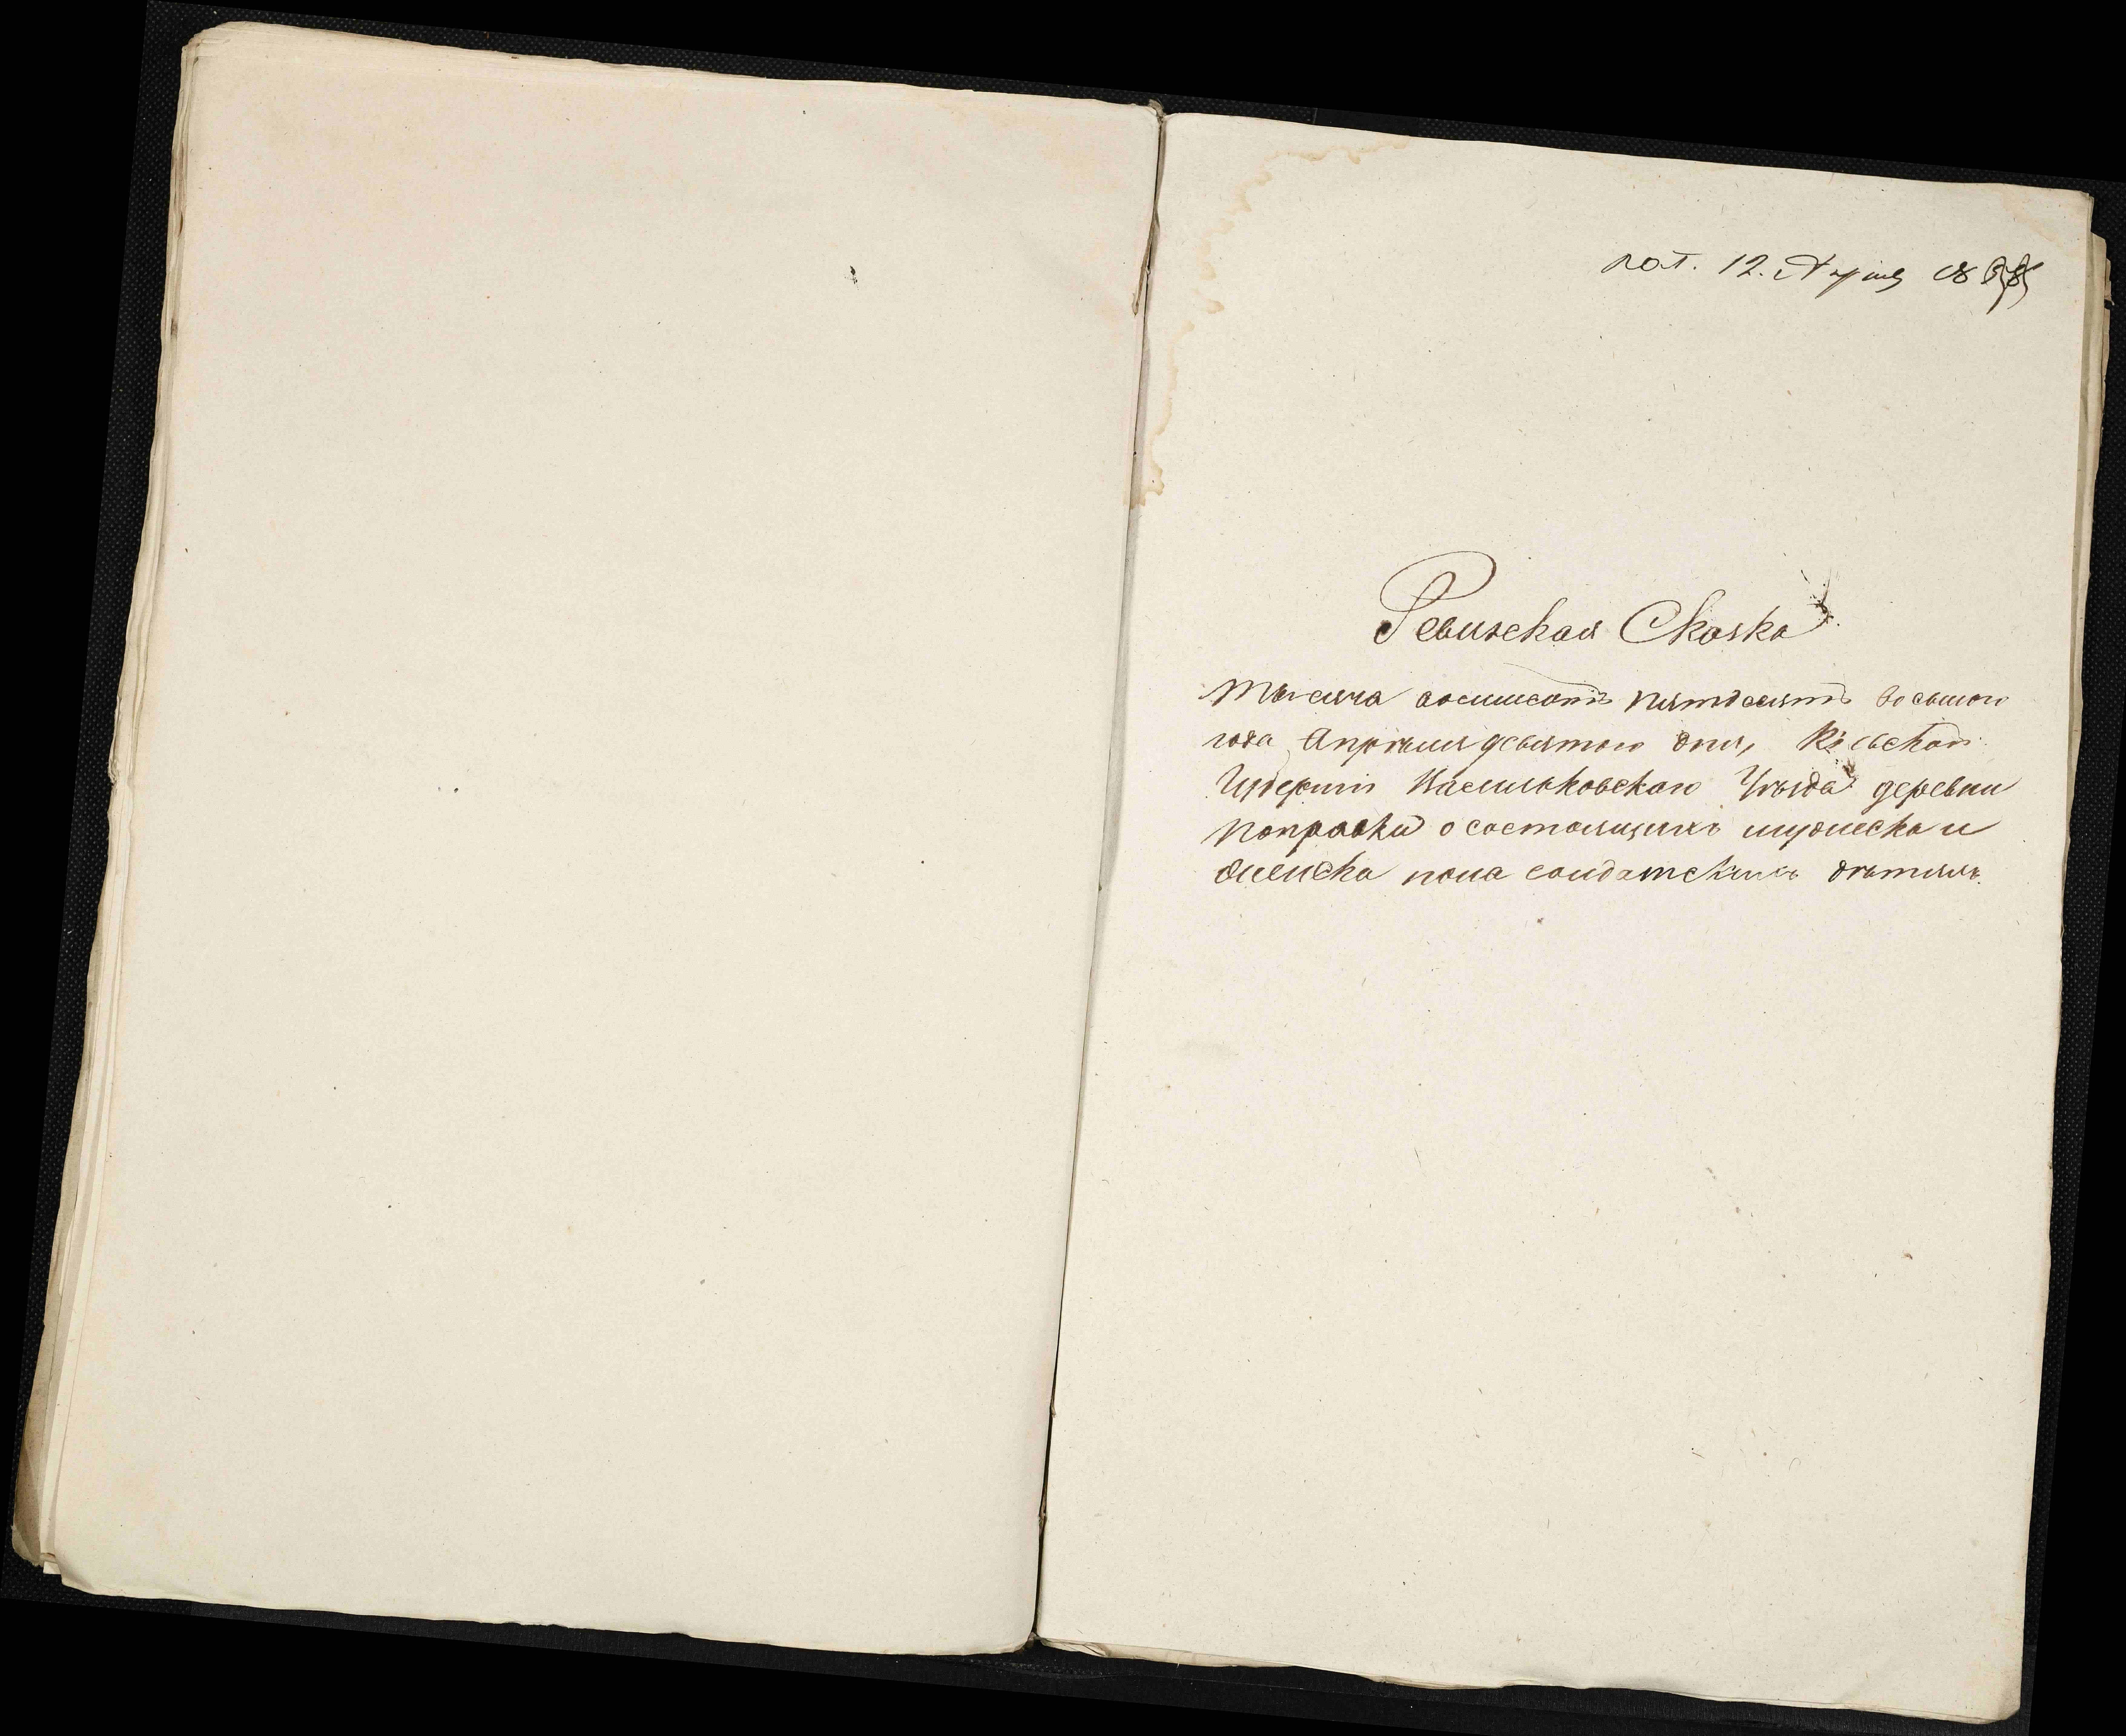 пол. 12. Апрѣля 1858
Ревизская Сказка
Тысяча восемьсотъ пятдесятъ восьмого
года Апрѣля девятого дня, Кіевской
Губерніи Васильковского Уѣзда деревни
Поправки о состоящихъ мужеска и
женска пола солдатскихъ дѣтяхъ